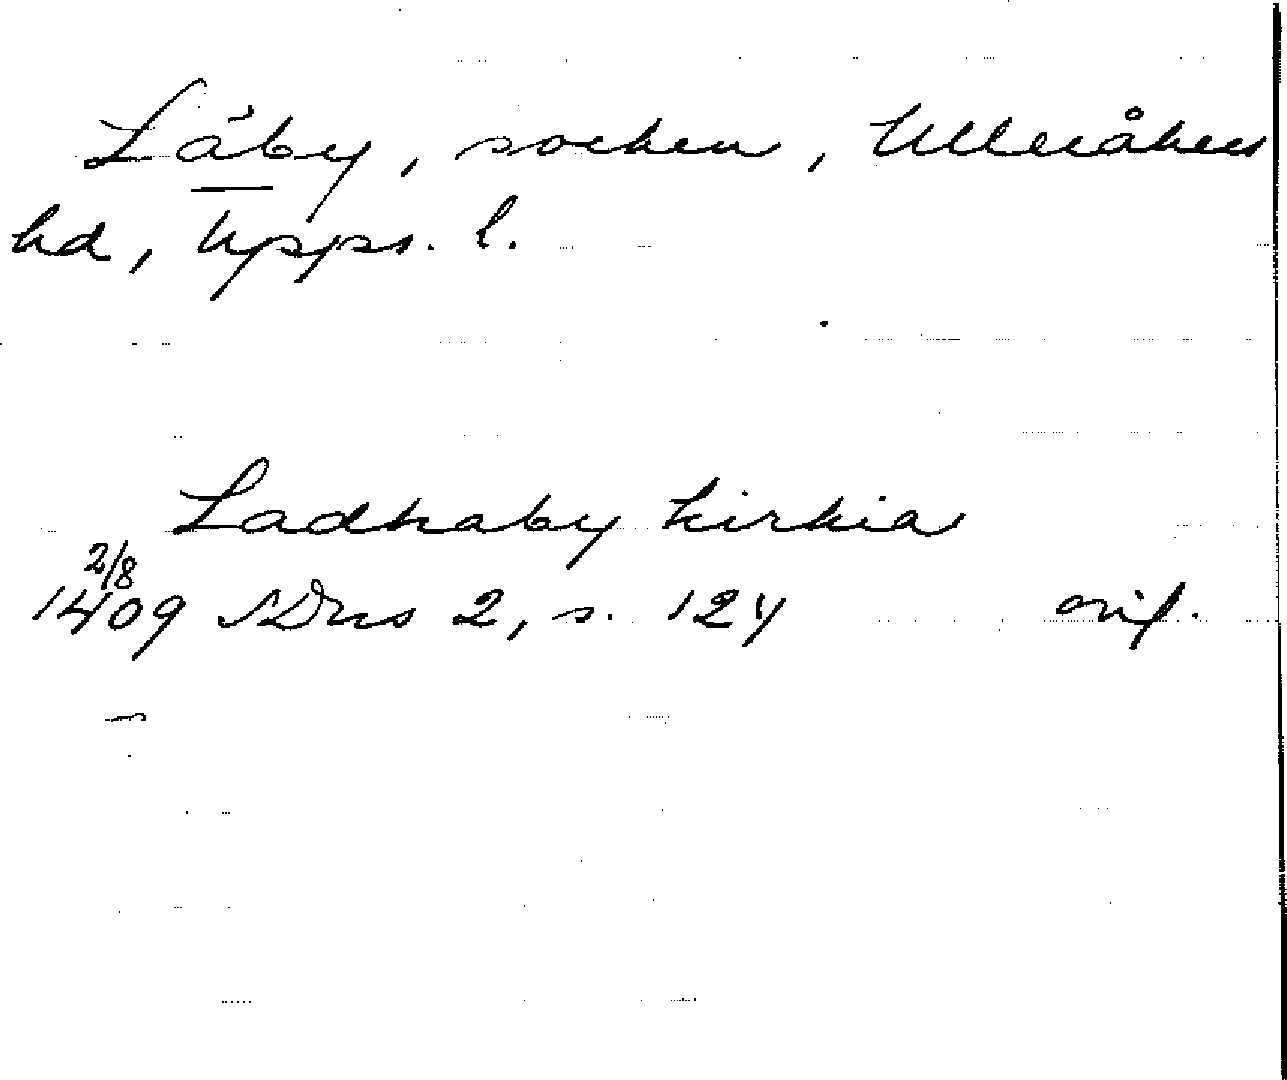 Läby, socken, Ulleråkers
hd, Upps. l.
Ladhaby kirkia
2/8
1409 SDns 2, s. 124 orig.